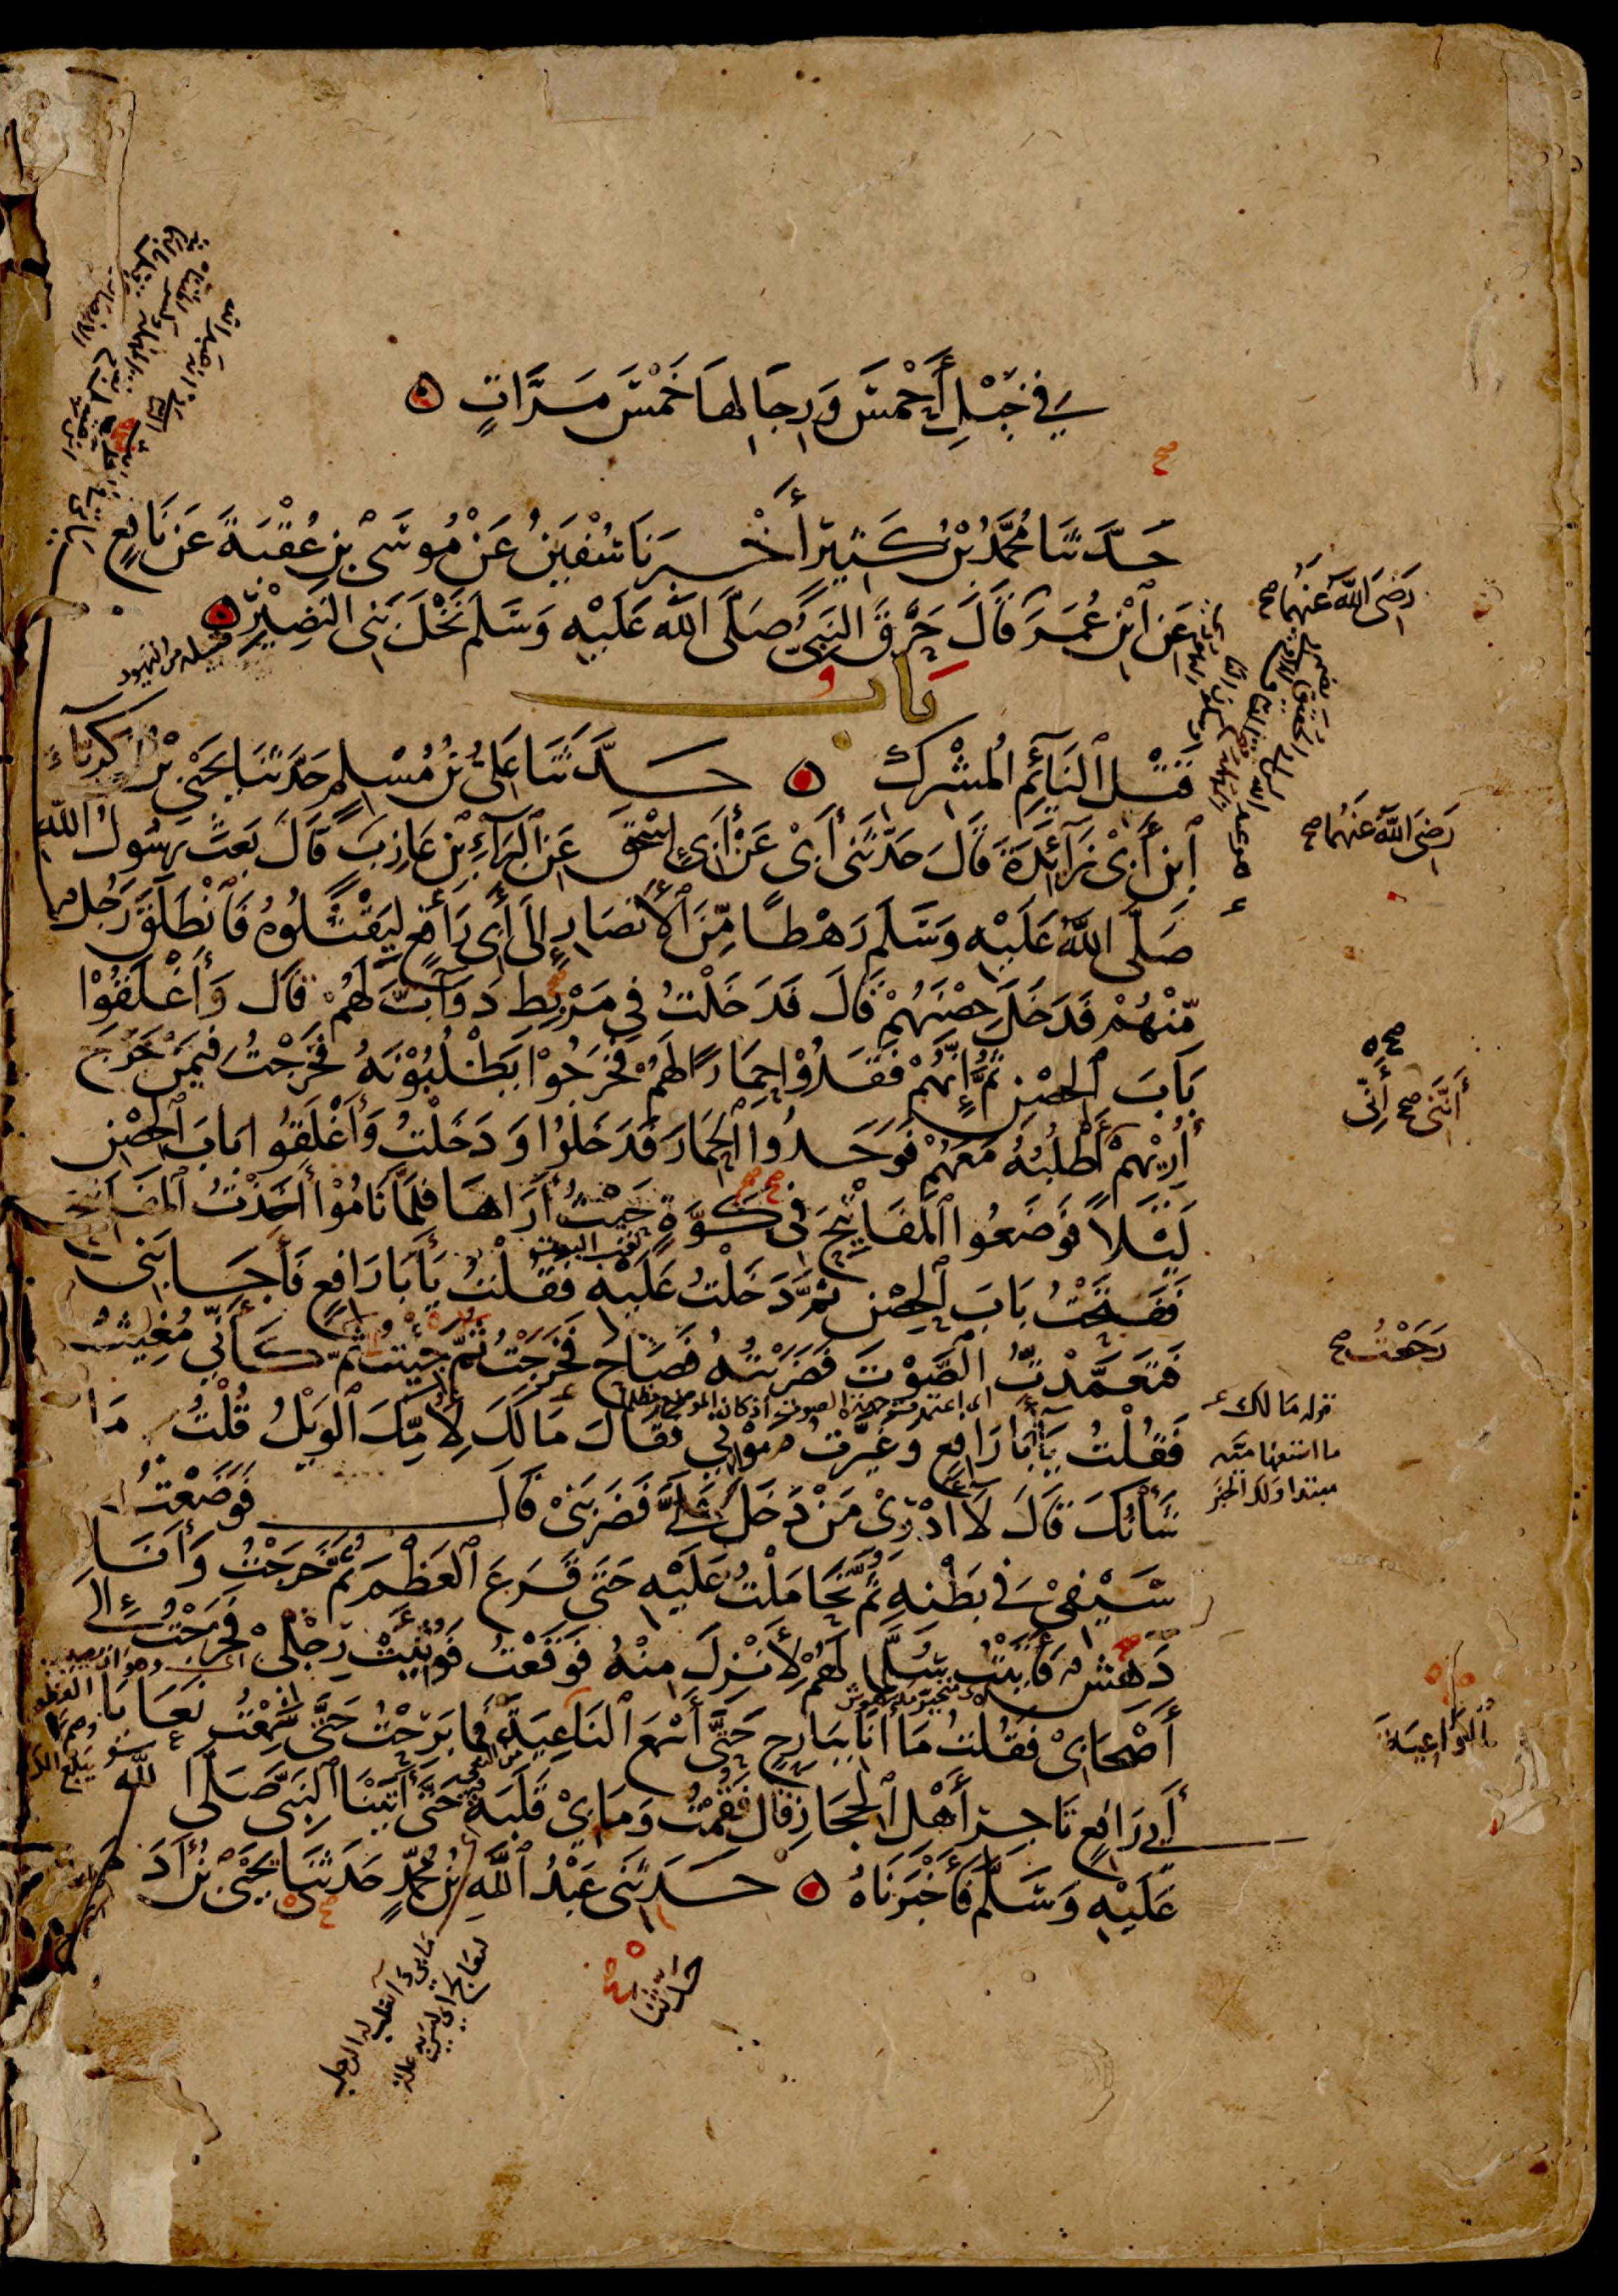 في خَيْلِ أَحْمَسَ وَرِجَالِهَا خَمْسَ مَرَّاتٍ
حَدَّثَنَا مُحَمَّدُ بْنُ كَثِيرٍ أَخْبَرَنَا سُفْيَنُ عَنْ مُوسَى بْنِ عُقْبَةَ عَنْ نَافِعٍ
عَنِ ابْنِ عُمَرَ قَالَ حَرَّقَ النَّبِيُّ صَلَّى اللهُ عَلَيْهِ وَسَلَّمَ نَخْلَ بَنِي النَّضِيْرِ
رَضِيَ اللهُ عَنْهُمَا صح
قبيلة من اليهود
بَاب
قَتْلِ النَّآئِمِ الْمُشْرِكِ حَدَّثَنَا عَلِيُّ بْنُ مُسْلِمٍ حَدَّثَنَا يَحْيَى بْنُ زَكَرِيَّاءَ
ابْنِ أَبِي زَآئِدَةَ قَالَ حَدَّثَنِي أَبِي عَنْ أَبِي إِسْحَقَ عَنِ الْبَرَآءِ بْنِ عَازِبٍ قَالَ بَعَثَ رَسُولُ اللهِ
رَضِيَ اللهُ عَنْهُمَا صح
صَلَّى اللهُ عَلَيْهِ وَسَلَّمَ رَهْطًا مِّنَ الْأَنْصَارِ إِلَى أَبِي رَافِعٍ لِيَقْتُلُوهُ فَانْطَلَقَ رَجُلٌ
مِّنْهُمْ فَدَخَلَ حِصْنَهُمْ قَالَ فَدَخَلْتُ فِي مَرْبِطِ دَوَآبَّ لَهُمْ قَالَ وَأَغْلَقُوْا
بَابَ الْحِصْنِ ثُمَّ إِنَّهُمْ فَقَدُوْا حِمَارًا لَهُمْ فَخَرَجُوْا يَطْلُبُوْنَهُ فَخَرَجْتُ فِيمَنْ خَرَجَ
أَنَّنِي صح أَنِّي
أُرِيْهِمْ أَطْلُبُهُ مَعَهُمْ فَوَجَدُوا الْحِمَارَ فَدَخَلُوْا وَدَخَلْتُ وَأَغْلَقُوا بَابَ الْحِصْنِ
لَيْلًا فَوَضَعُوا الْمَفَاتِيْحَ فِي كَوَّةٍ حَيْثُ أَرَاهَا فَلَمَّا نَامُوْا أَخَذْتُ الْمَفَاتِيْحَ
فَفَتَحْتُ بَابَ الْحِصْنِ ثُمَّ دَخَلْتُ عَلَيْهِ فَقُلْتُ يَأَبَا رَافِعٍ فَأَجَابَنِي
فَتَعَمَّدْتُّ الصَّوْتَ فَضَرَبْتُهُ فَصَاحَ فَخَرَجْتُ ثُمَّ جِئْتُ ثُمَّ كَأَنِّي مُغِيثٌ
رَجَعْتُ صح
فَقُلْتُ يَأَبَا رَافِعٍ وَغَيَّرْتُ صَوْتِي فَقَالَ مَا لَكَ لِأُمِّكَ الْوَيْلُ قُلْتُ مَا
قوله مَا لَكَ
ما استفهامية
مبتدا ولك الخبر
شَأْنُكَ قَالَ لَا أَدْرِيْ مَنْ دَخَلَ عَلَيَّ فَضَرَبَنِيْ قَالَ فَوَضَعْتُ
سَيْفِيْ فِي بَطْنِهِ ثُمَّ تَحَامَلْتُ عَلَيْهِ حَتَّى قَرَعَ الْعَظْمَ ثُمَّ خَرَجْتُ وَأَنَا
دَهِشٌ فَأَتَيْتُ سُلَّمًا لَهُمْ لِأَنْزِلَ مِنْهُ فَوَقَعْتُ فَوُثِئَتْ رِجْلِيْ فَخَرَجْتُ إِلَى
أَصْحَابِيْ فَقُلْتُ مَا أَنَا بِبَارِحٍ حَتَّى أَسْمَعَ النَّاعِيَةَ فَمَا بَرِحْتُ حَتَّى سَمِعْتُ نَعَايَا
الْوَاعِيَةَ
أَبِي رَافِعٍ تَاجِرِ أَهْلِ الْحِجَازِ قَالَ فَقُمْتُ وَمَا بِيْ قَلَبَةٌ حَتَّى أَتَيْنَا النَّبِيَّ صَلَّى اللهُ
عَلَيْهِ وَسَلَّمَ فَأَخْبَرْنَاهُ حَدَّثَنِي عَبْدُ اللهِ بْنُ مُحَمَّدٍ حَدَّثَنَا يَحْيَى بْنُ آدَمَ
حَدَّثَنَا